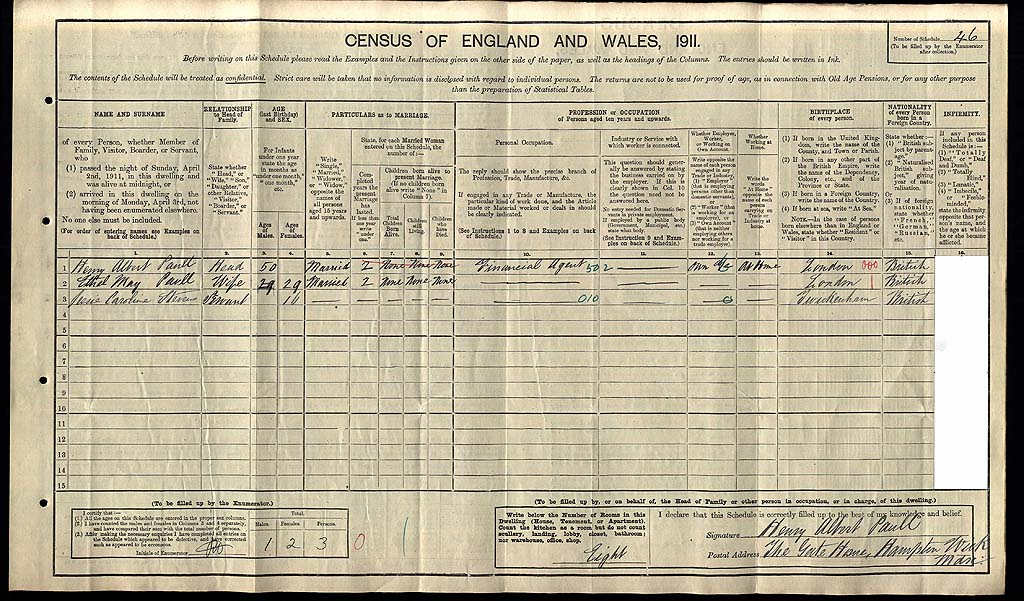 CENSUS OF ENGLAND AND WALES, 1911.
Number of Schedule 46
(To be filled up by the Enumerator after collection.)
Before writing on this Schedule please read the Examples and the Instructions given on the other side of the paper, as well as the headings of the Columns. The entries should be written in Ink.
The contents of the Schedule will be treated as confidential. Strict care will be taken that no information is disclosed with regard to individual persons. The returns are not to be used for proof of age, as in connection with Old Age Pensions, or for any other purpose
than the preparation of Statistical Tables.
NAME AND SURNAME
RELATIONSHIP to Head of Family.
AGE (last Birthday) and SEX.
PARTICULARS as to MARRIAGE.
PROFESSION or OCCUPATION
of Persons aged ten years and upwards.
BIRTHPLACE of every person.
NATIONALITY of every Person born in a Foreign Country.
INFIRMITY.
of every Person, whether Member of
Family, Visitor, Boarder, or Servant,
who
(1) passed the night of Sunday, April
2nd, 1911, in this dwelling and
was alive at midnight, or
(2) arrived in this dwelling on the
morning of Monday, April 3rd, not
having been enumerated elsewhere.
No one else must be included.
(For order of entering names see Examples on
back of Schedule.)
State whether
"Head," or
"Wife," "Son,"
"Daughter," or
other Relative,
"Visitor,"
"Boarder," or
"Servant."
For Infants
under one year
state the age
in months as
"under one month,"
"one month,"
etc.
Ages of Males.
Ages of Females.
Write
"Single,"
"Married,"
"Widower,"
or "Widow,"
opposite the
names of
all persons
aged 15 years
and upwards.
State, for each Married Woman
entered on this Schedule, the
number of:—
Completed years the present Marriage has lasted. If less than one year write "under one."
Children born alive to
present Marriage.
(If no children
born alive write
"None" in
Column 7).
Total Children Born Alive.
Children still Living.
Children who have Died.
Personal Occupation.
The reply should show the precise branch of
Profession, Trade, Manufacture, &c.
If engaged in any Trade or Manufacture, the
particular kind of work done, and the Article
made or Material worked or dealt in should
be clearly indicated.
(See Instructions 1 to 8 and Examples on back
of Schedule.)
Industry or Service with
which worker is connected.
This question should generally be answered by stating the business carried on by the employer. If this is clearly shown in Col. 10 the question need not be answered here.
No entry needed for Domestic Servants in private employment.
If employed by a public body (Government, Municipal, etc.) state what body.
(See Instruction 9 and Examples on back of Schedule.)
Whether Employer, Worker, or Working on Own Account.
Write opposite the name of each person engaged in any Trade or Industry,
(1) "Employer" (that is employing persons other than domestic servants), or
(2) "Worker" (that is working for an employer), or
(3) "Own Account" (that is neither employing others nor working for a trade employer).
Whether Working at Home.
Write the words "At Home" opposite the name of each person carrying on Trade or Industry at home.
(1) If born in the United Kingdom, write the name of the County, and Town or Parish.
(2) If born in any other part of the British Empire, write the name of the Dependency, Colony, etc., and of the Province or State.
(3) If born in a Foreign Country, write the name of the Country.
(4) If born at sea, write "At Sea."
NOTE.—In the case of persons born elsewhere than in England or Wales, state whether "Resident" or "Visitor" in this Country.
State whether:—
(1) "British subject by parentage."
(2) "Naturalised British subject," giving year of naturalisation.
(3) If of foreign nationality, state whether "French," "German," "Russian," etc.
If any person included in this Schedule is:—
(1) "Totally Deaf," or "Deaf and Dumb,"
(2) "Totally Blind,"
(3) "Lunatic,"
(4) "Imbecile," or "Feeble-minded,"
state the infirmity opposite that person's name, and the age at which he or she became afflicted.
1. 2. 3. 4. 5. 6. 7. 8. 9. 10. 11. 12. 13. 14. 15. 16.
1 Henry Albert Paull Head 50 Married 2 None None None Financial Agent 502 — Own a/c At Home London 000 British
2 Ethel May Paull Wife 29 29 Married 2 None None None — — — — London British
3 Caroline Servant 11 — — — — — 010 Twickenham British
4
5
6
7
8
9
10
11
12
13
14
15
(To be filled up by the Enumerator.)
I certify that:—
(1.) All the ages on this Schedule are entered in the proper sex columns.
(2.) I have counted the males and females in Columns 3 and 4 separately, and have compared their sum with the total number of persons.
(3.) After making the necessary enquiries I have completed all entries on the Schedule which appeared to be defective, and have corrected such as appeared to be erroneous.
Initials of Enumerator
Total.
Males. Females. Persons.
1 2 3 0
(To be filled up by, or on behalf of, the Head of Family or other person in occupation, or in charge, of this dwelling.)
Write below the Number of Rooms in this
Dwelling (House, Tenement, or Apartment).
Count the kitchen as a room but do not count
scullery, landing, lobby, closet, bathroom;
nor warehouse, office, shop.
Eight
I declare that this Schedule is correctly filled up to the best of my knowledge and belief.
Signature Henry Albert Paull
Postal Address The Gate House, Hampton Wick
Mdx.